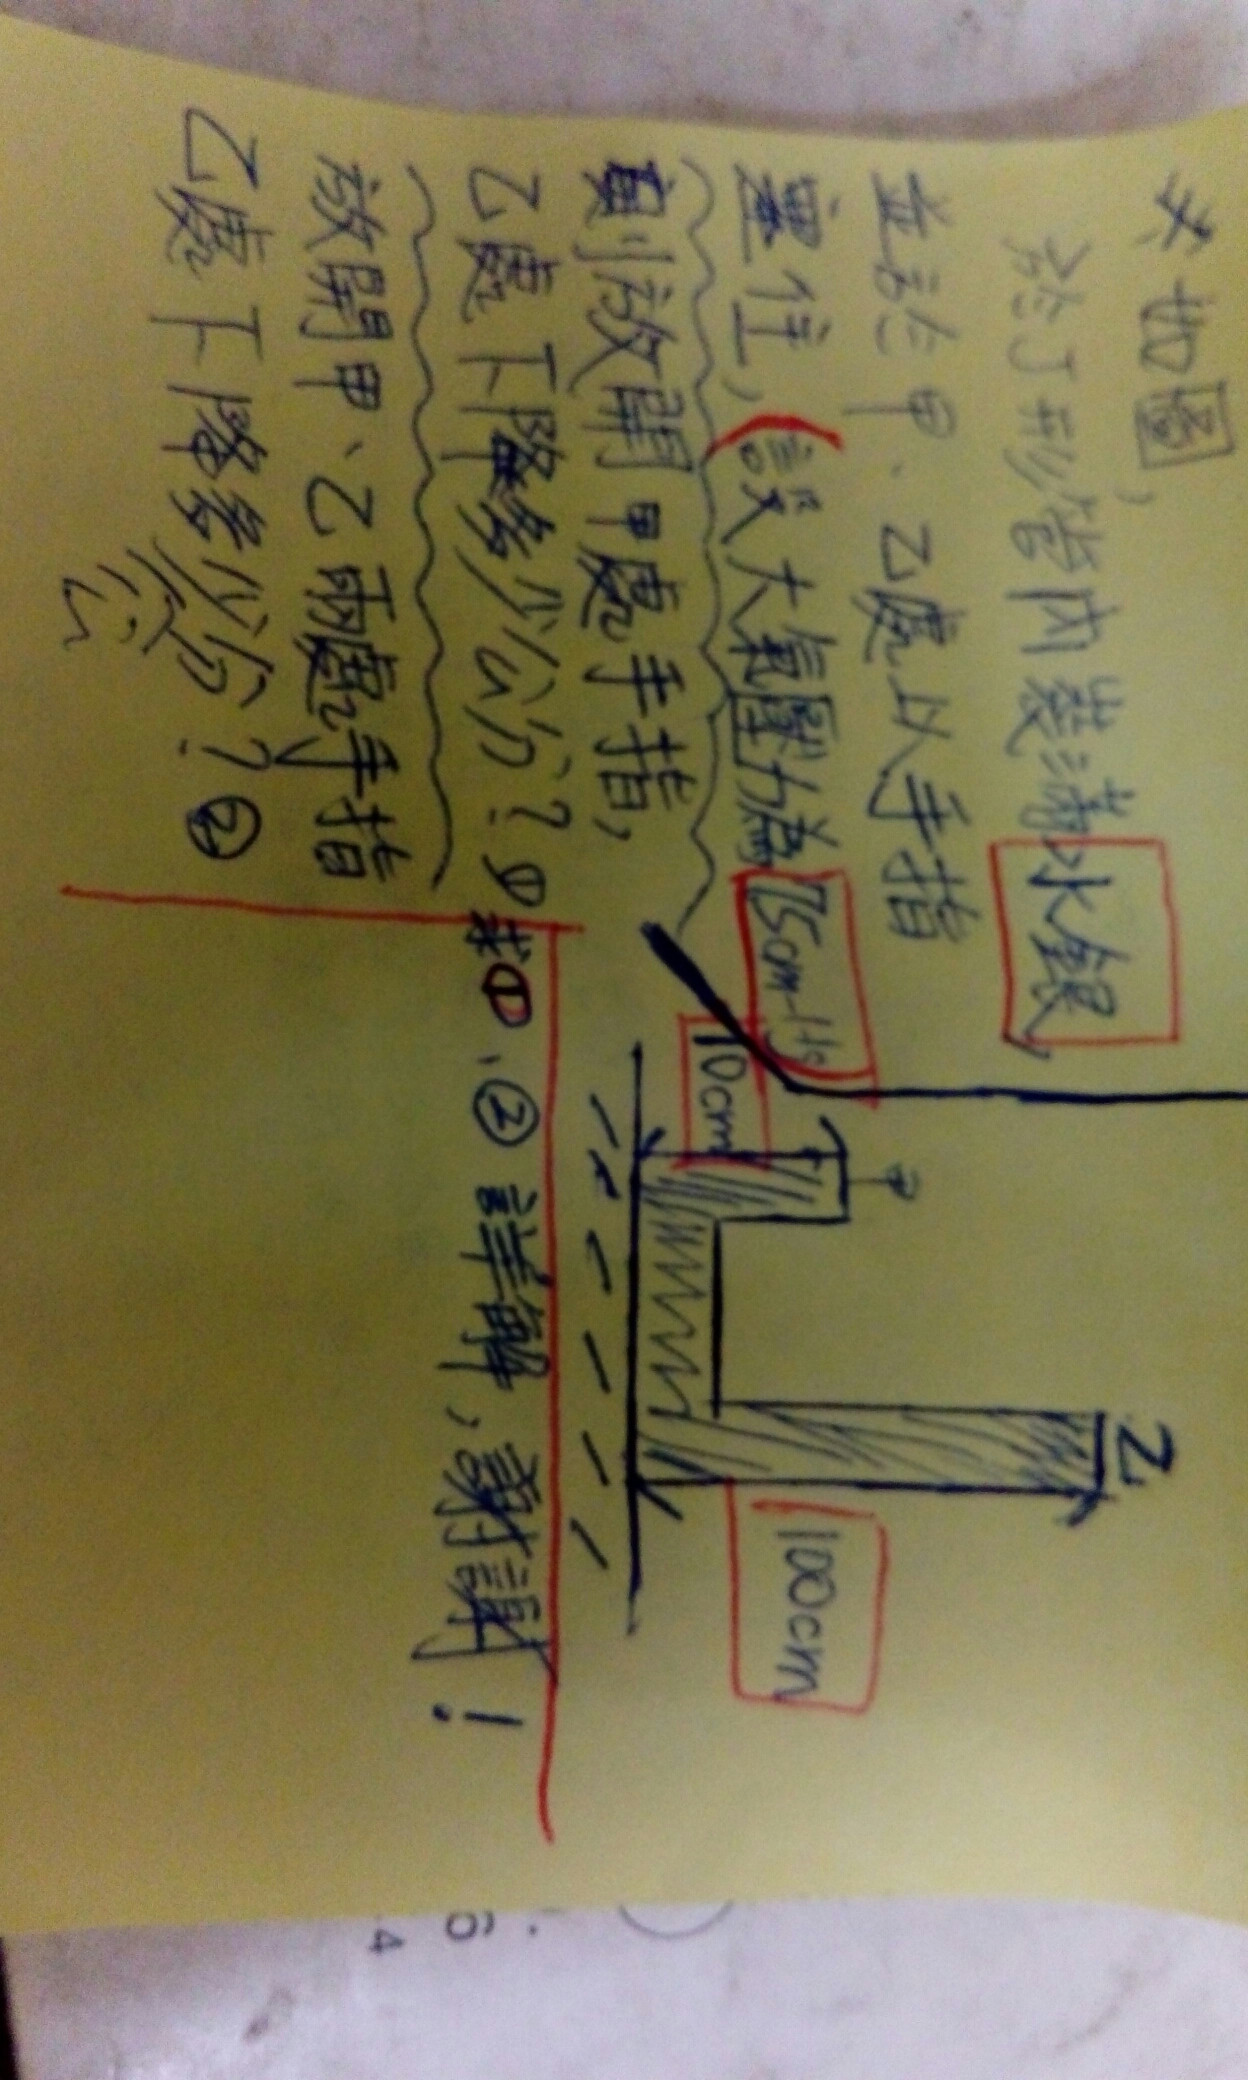 ※如圖,
於J形管內裝滿水銀,
並於甲、乙處以手指
塞住,(設大氣壓力為75cm-Hg)
則放開甲處手指,
乙處下降多少公分?①
放開甲、乙兩處手指
乙處下降多少公分?②
求①、②詳解,謝謝!
甲
10cm
乙
100cm
6
4